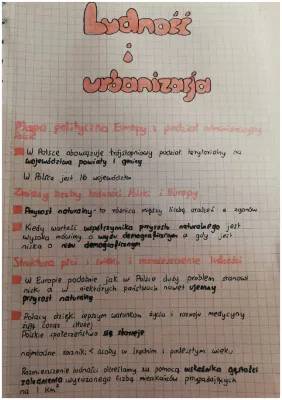 Ludność
i
urbanizacja
Mapa polityczna Europy i podział administracyjny
Polski
W Polsce obowiązuje trójstopniowy podział terytorialny na
województwa powiaty i gminy
W Polsce jest 16 województw
Zmiany liczby ludności Polski i Europy
Przyrost naturalny - to różnica między liczbą urodzeń a zgonów
Kiedy wartość współczynnika przyrostu naturalnego jest
wysoka mówimy o wyżu demograficznym a gdy jest
niska o niżu demograficznym
Struktura płci i wieku i rozmieszczenie ludności
W Europie podobnie jak w Polsce duży problem stanowi
niski a w niektórych państwach nawet ujemny
przyrost naturalny
Polacy dzięki lepszym warunkom życia i rozwoju medycyny
żyją coraz dłużej
Polskie społeczeństwo się starzeje
najmłodsze roczniki < osoby w średnim i podeszłym wieku
Rozmieszczenie ludności określamy za pomocą wskaźnika gęstości
zaludnienia wyrażonego liczbą mieszkańców przypadających
na 1 km²